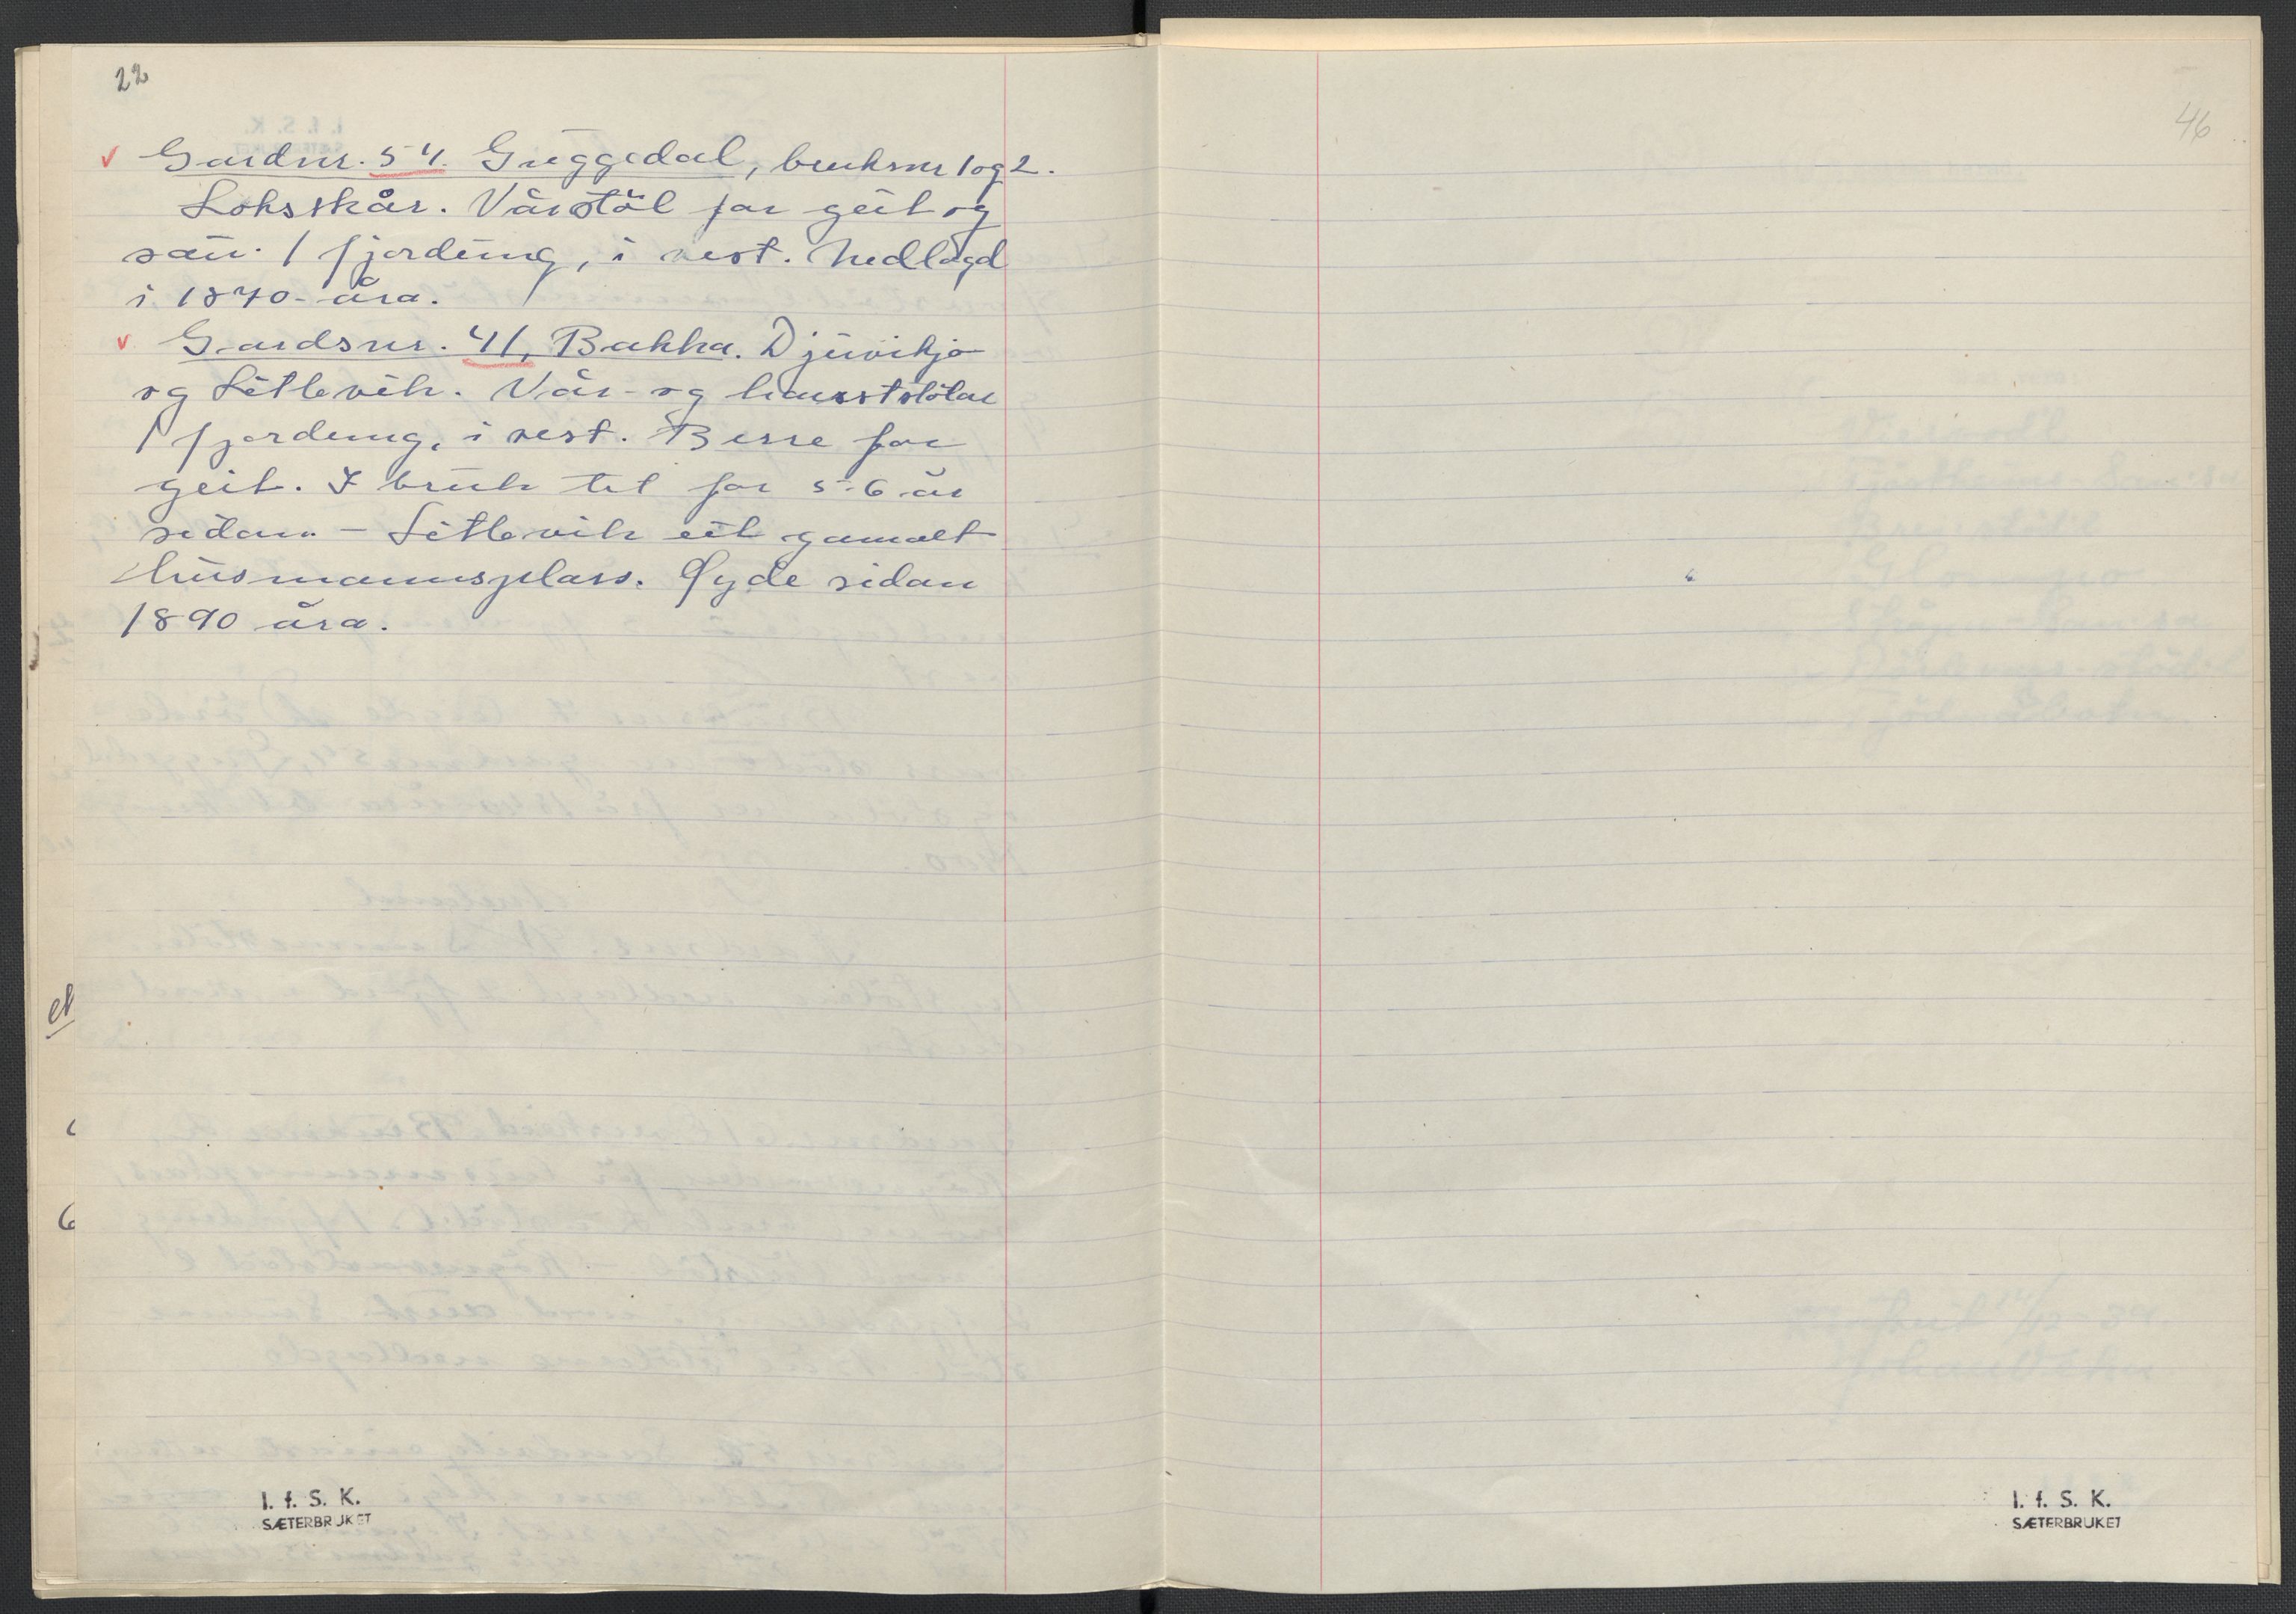 22
46
v Gardnr. 54. Guggedal, bruksnr 1 og 2.
Loksskår. Vårstöl for geit og
sau. 1 fjordung, i vest. Nedlagd
i 1870-åra.
v Gardsnr. 41, Bakka. Djuvikjo
og Litlevik. Vår- og hauststölar
1 fjordung, i vest. Besse for
geit. I bruk til for 5-6 år
sidan. - Litlevik eit gamalt
husmannsplass. Øyde sidan
1890 åra.
I. f. S. K.
SÆTERBRUKET
I. f. S. K.
SÆTERBRUKET